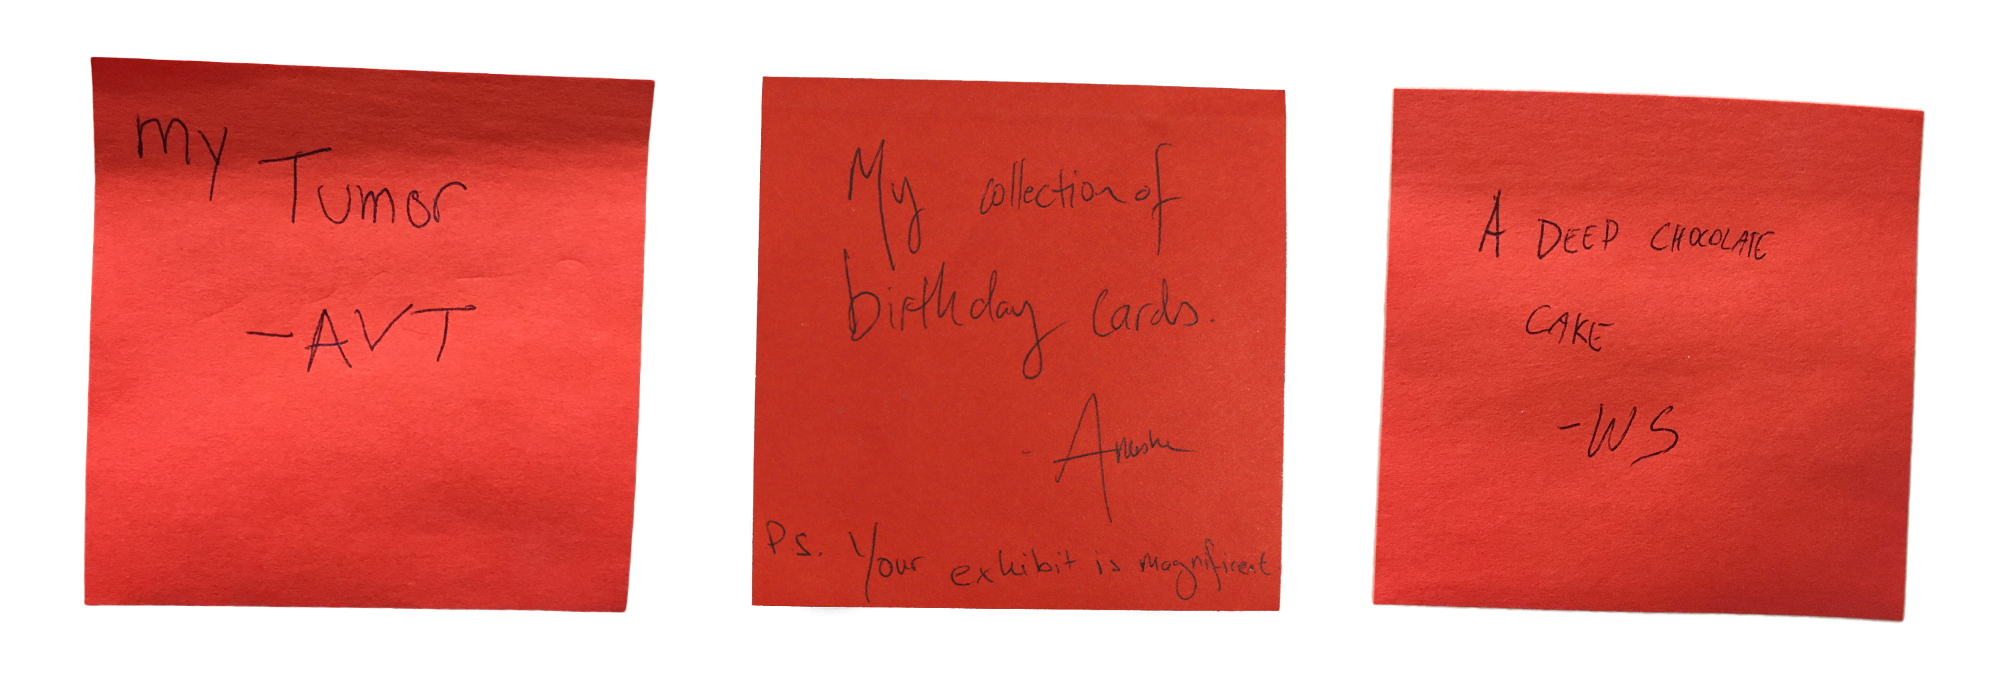 My
Tumor
-AVT
My collection of
birthday cards.
-
P.S. Your exhibit is magnificent
A DEEP CHOCOLATE
CAKE
-WS